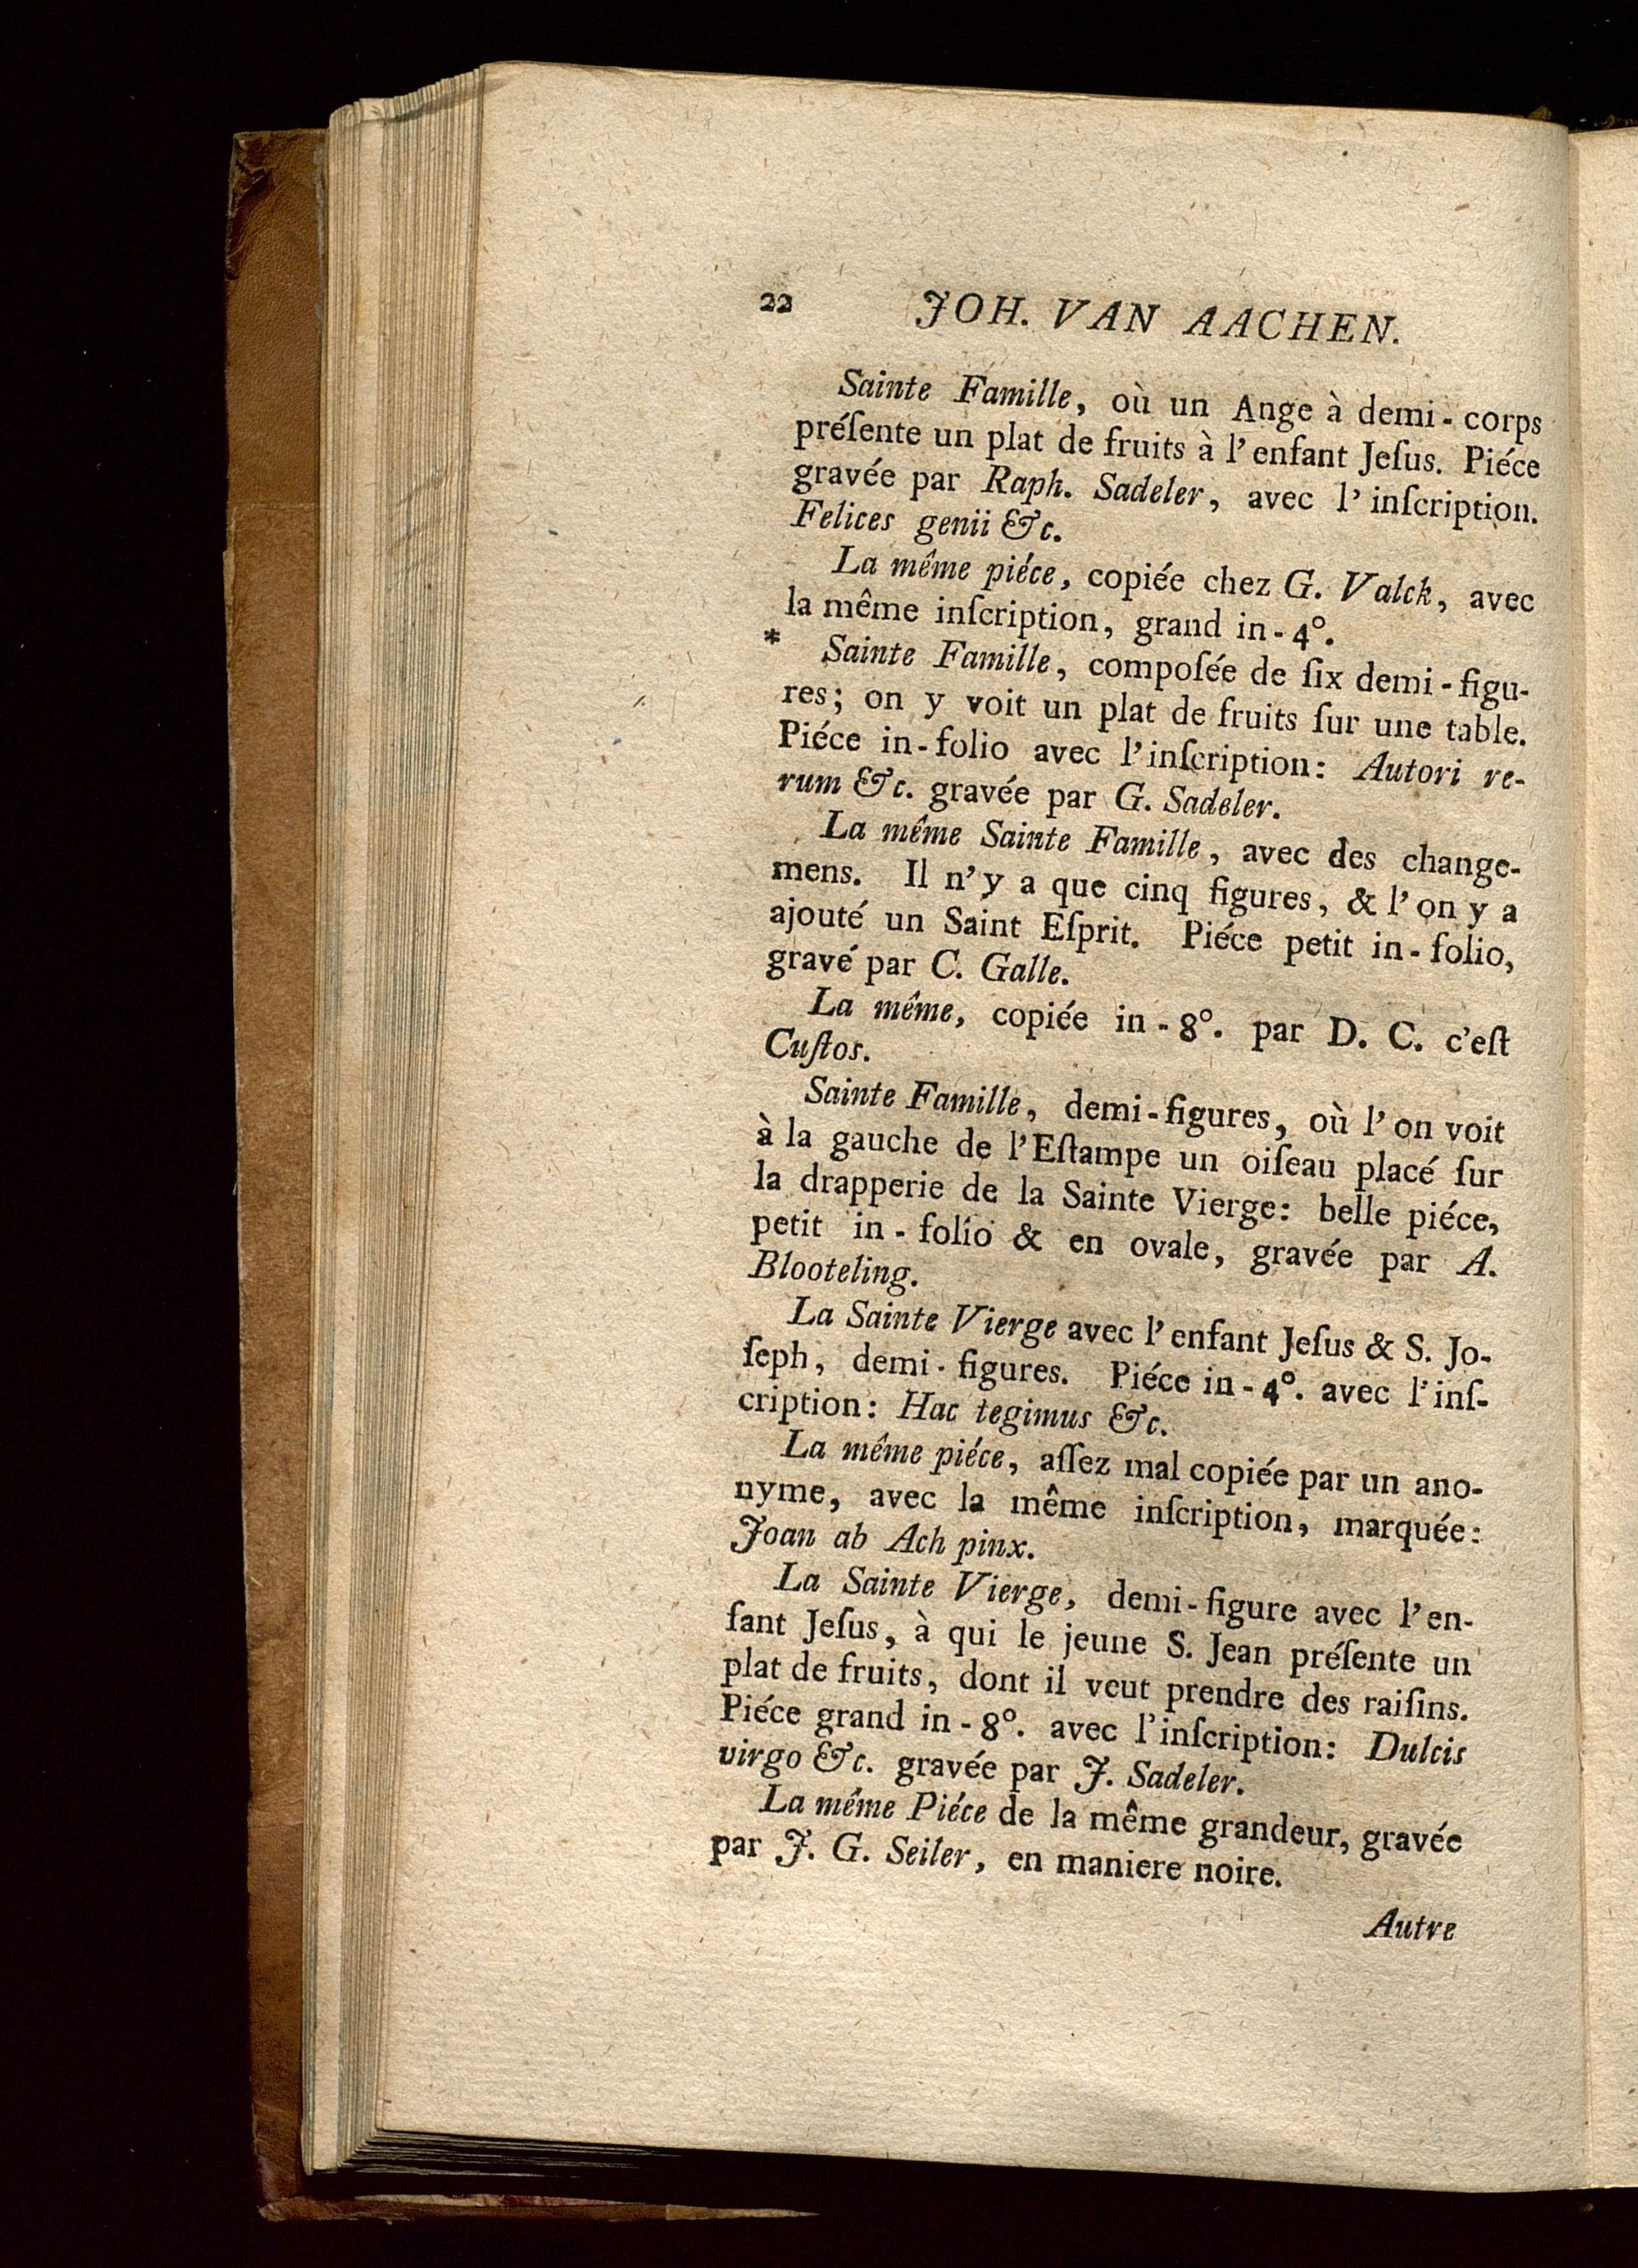 22 JOH. VAN AACHEN.
Sainte Famille, où un Ange à demi-corps
préſente un plat de fruits à l'enfant Jeſus. Piéce
gravée par Raph. Sadeler, avec l'inſcription.
Felices genii &c.
La même piéce, copiée chez G. Valck, avec
la même inſcription, grand in-4°.
* Sainte Famille, compoſée de ſix demi-figu-
res; on y voit un plat de fruits ſur une table.
Piéce in-folio avec l'inſcription: Autori re-
rum &c. gravée par G. Sadeler.
La même Sainte Famille, avec des change-
mens. Il n'y a que cinq figures, & l'on y a
ajouté un Saint Eſprit. Piéce petit in-folio,
gravé par C. Galle.
La même, copiée in-8°. par D. C. c'eſt
Cuſtos.
Sainte Famille, demi-figures, où l'on voit
à la gauche de l'Eſtampe un oiſeau placé ſur
la drapperie de la Sainte Vierge: belle piéce,
petit in-folio & en ovale, gravée par A.
Blooteling.
La Sainte Vierge avec l'enfant Jeſus & S. Jo-
ſeph, demi-figures. Piéce in-4°. avec l'inſ-
cription: Hac tegimus &c.
La même piéce, aſſez mal copiée par un ano-
nyme, avec la même inſcription, marquée:
Joan ab Ach pinx.
La Sainte Vierge, demi-figure avec l'en-
fant Jeſus, à qui le jeune S. Jean préſente un
plat de fruits, dont il veut prendre des raiſins.
Piéce grand in-8°. avec l'inſcription: Dulcis
virgo &c. gravée par J. Sadeler.
La méme Piéce de la même grandeur, gravée
par J. G. Seiler, en maniere noire.
Autre